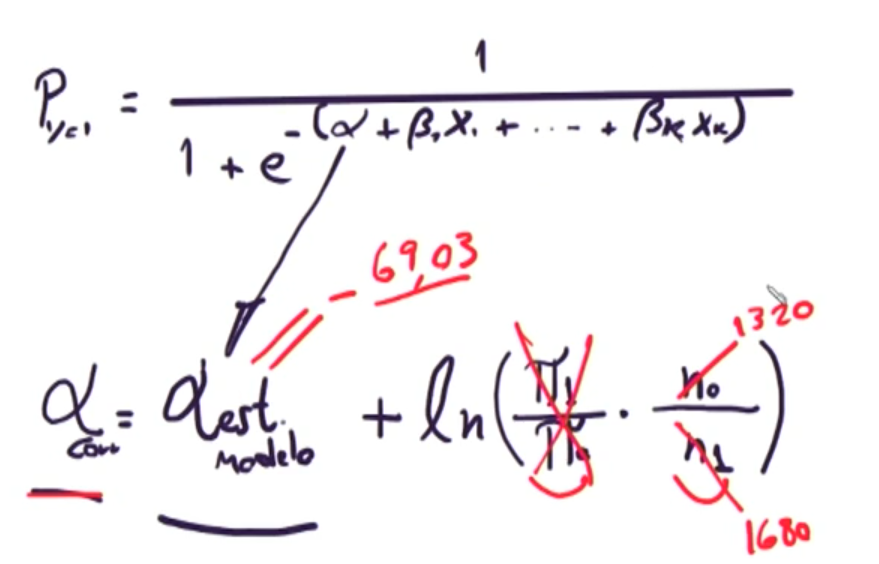 1
P y=1 =
1 + e -(α + β1X1 + ..... + βkXk)
- 69,03
1320
α corr = α est. modelo + ln(π1/π0 · n0/n1)
1680